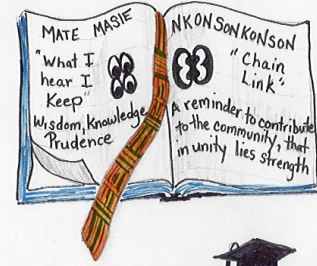 MATE MASIE
"What I
hear I
Keep"
Wisdom, Knowledge
Prudence
NKONSONKONSON
"Chain
Link"
A reminder to contribute
to the community, that
in unity lies strength